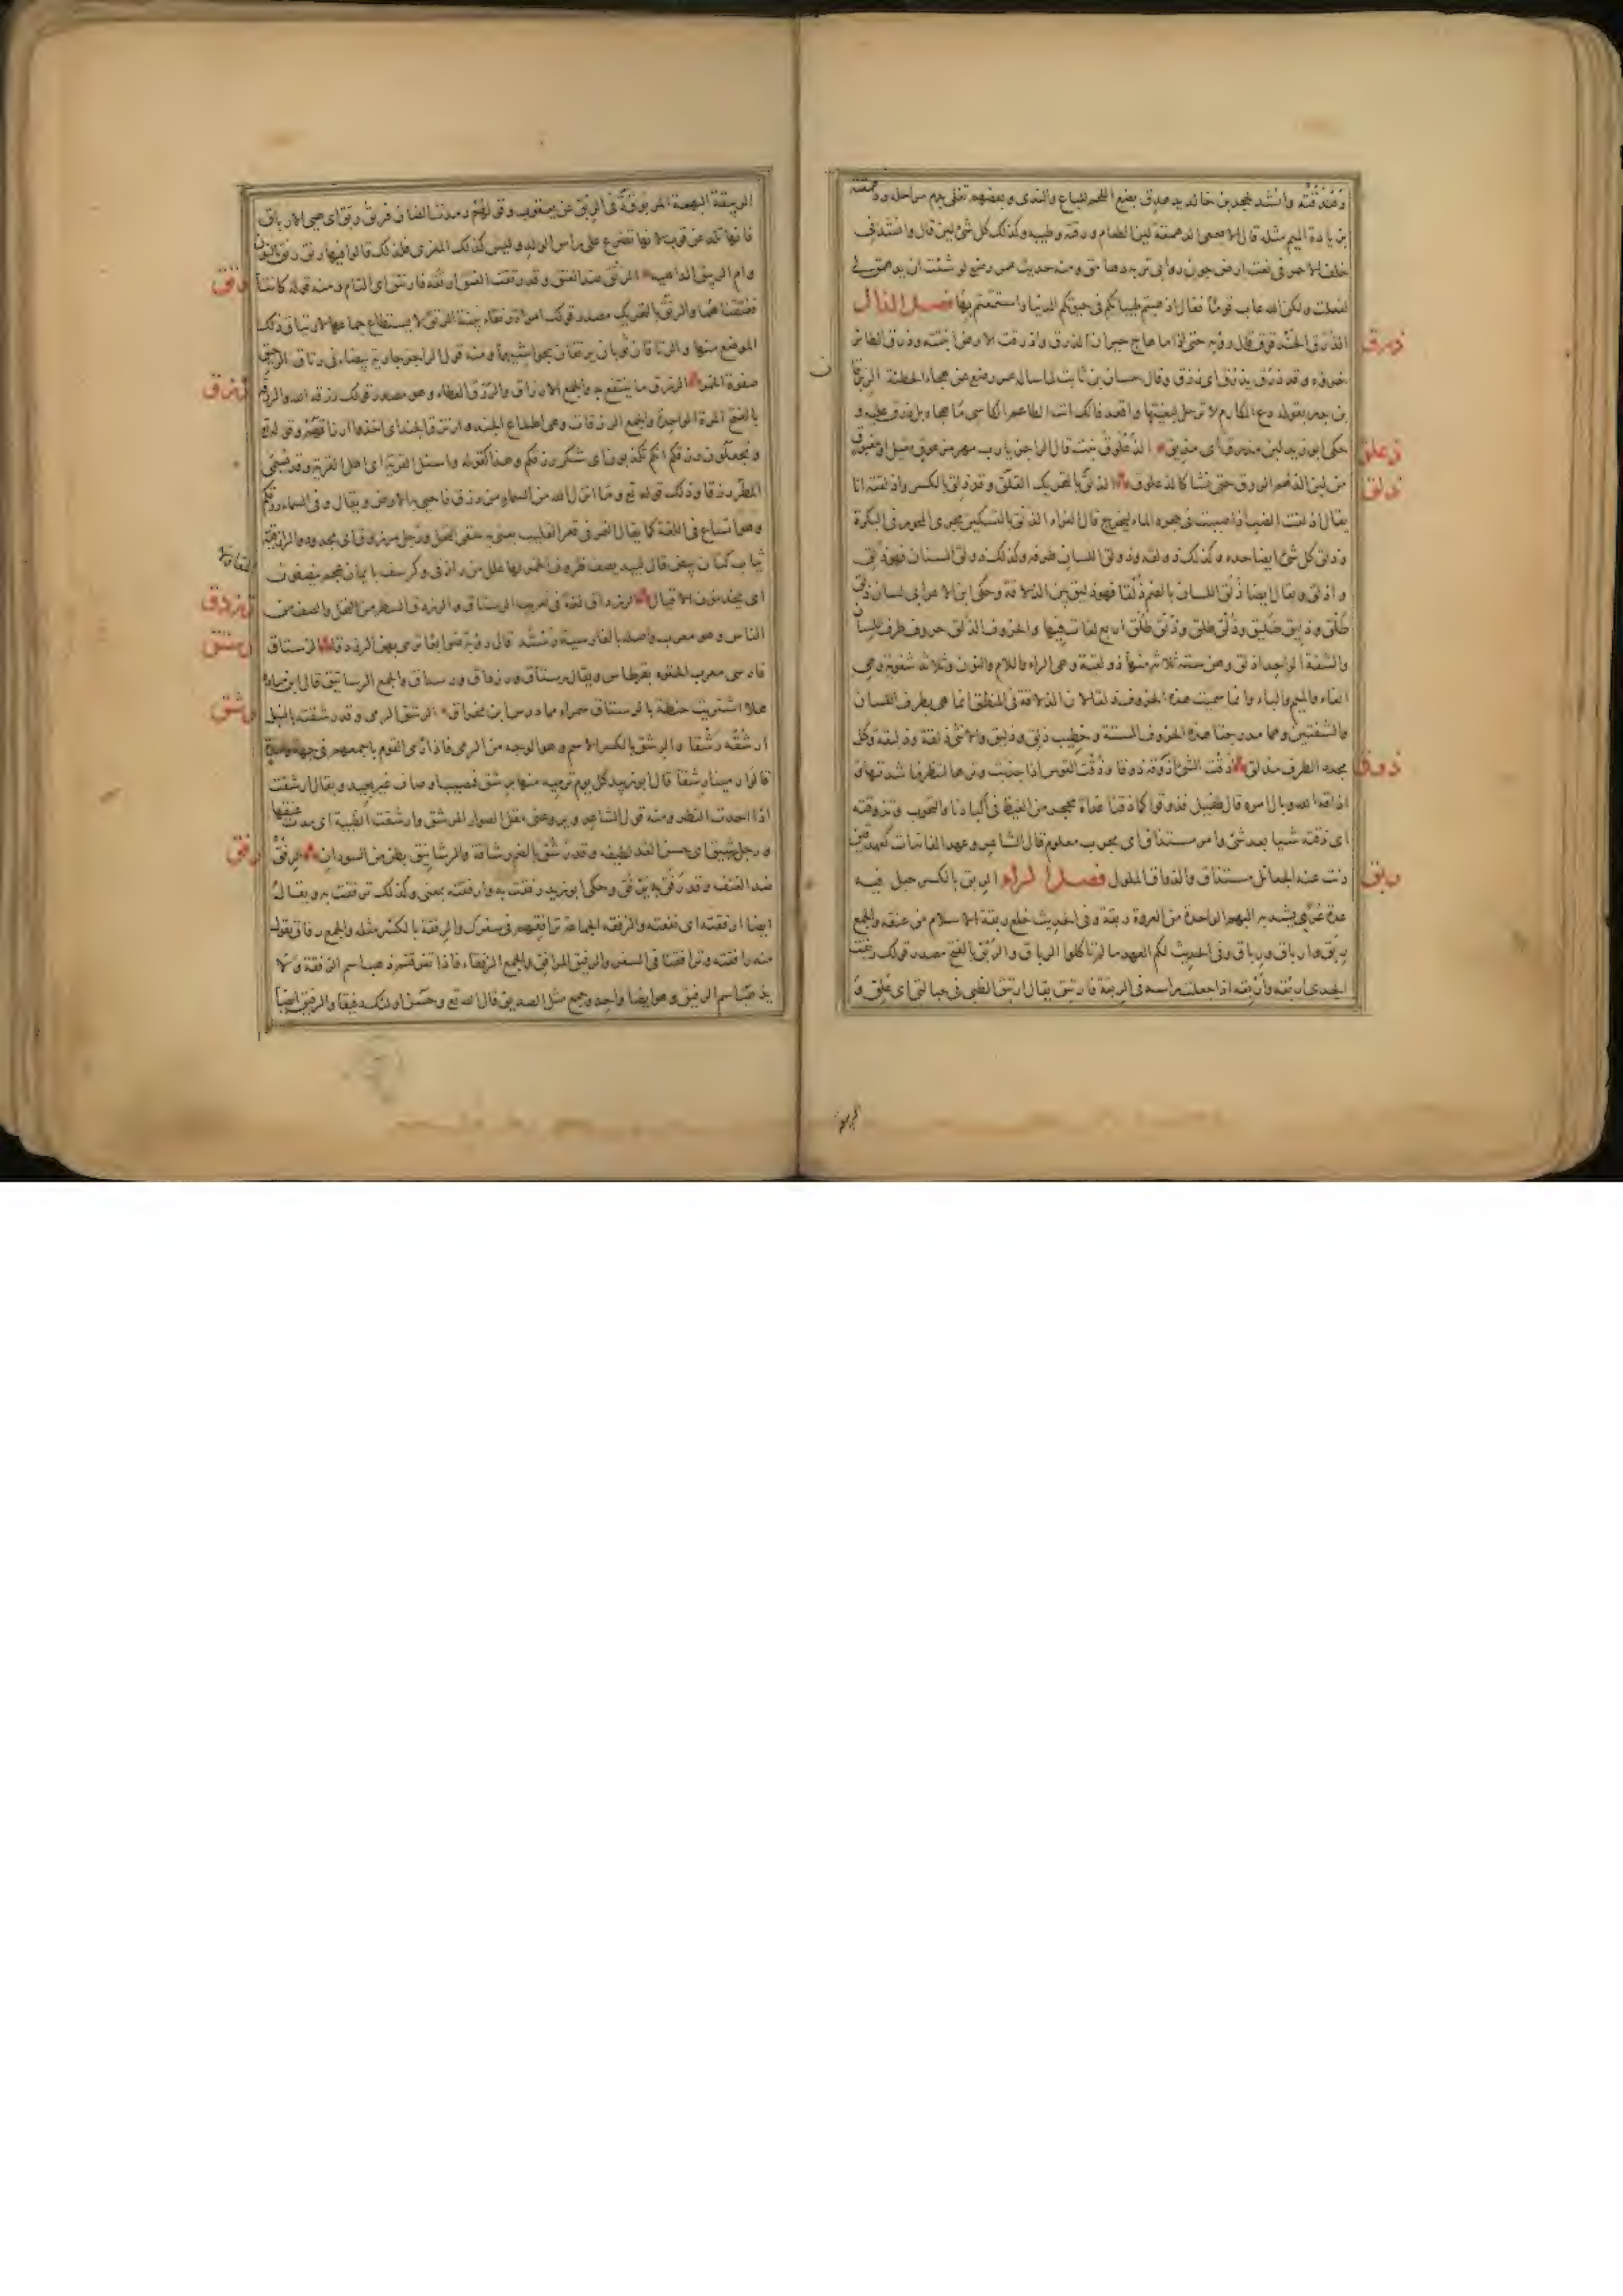 بن يادة الميم مثله قال الاصمعى الدهمقة لين الطعام ورقته وطيبه وكذلك كل شئ لين قال وانشدنى
خلف الاحمر فى نعت ارض جون روابى تربه دهامق ومنه حديث عمر رضع لو شئت ان يدهمق لى
لفعلت ولكن الله عاب قوما فقال اذهبتم طيباتكم فى حيوتكم الدنيا واستمتعتم بها فصل الذال
ذرق
الذرق الحندقوق قال رؤبة حتى اذا ما هاج حيران الذرق واذرقت الارض انبتته وذرق الطائر
خرؤه وقد ذرق يذرق اى زرق وقال حسان بن ثابت لما ساله عمر رضع عن هجاء الحطيئة الزبرقان
بن بدر بقوله دع المكارم لا ترحل لبغيتها واقعد فانك انت الطاعم الكاسى ما هجاه بل ذرق عليه و
ذعلق
حكى ابو زيد لبن مذرق اى مذيق الذعلوق نبت قال الراجز يا رب مهر مزعوق مقيل او مغبوق
ذلق
من لبن الدهم الروق حتى شتا كالذعلوق الذلق بالتحريك القلق وقد ذلق بالكسر واذلقته انا
يقال اذلقت الضب اذا صببت فى جحره الماء ليخرج قال الفراء الذلق بالتسكين مجرى المحور فى البكرة
وذلق كل شئ ايضا حده وكذلك ذولقه وذولق اللسان طرفه وكذلك ذولق السنان فهو ذلق
واذلق ويقال ايضا ذلق اللسان بالضم ذلقا فهو ذليق بين الذلاقة وحكى ابن الاعرابى لسان ذلق
طلق وذليق طليق وذلق طلق وذلق طلق اربع لغات فيها والحروف الذلق حروف طرف اللسان
والشفة الواحد اذلق وهن ستة ثلاثة منها ذولقية وهى الراء واللام والنون وثلاثة شفوية وهى
الفاء والميم والباء وانما سميت هذه الحروف ذلقا لان الذلاقة فى المنطق انما هى بطرف اللسان
والشفتين وهما مدرجتا هذه الحروف الستة وخطيب ذلق وذليق والانثى ذلقة وذليقة وكل
ذوق
محدد الطرف مذلق ذقت الشئ اذوقه ذوقا وذقت القوس اذا جذبت وترها لتنظر ما شدتها و
اذاقه الله وبال امره قال طفيل فذوقوا كما ذقنا غداة محجر من الغيظ فى اكبادنا والتحوب وتذوقته
اى ذقته شيا بعد شئ وامر مستذاق اى مجرب معلوم قال الشاعر وعهد الغانيات كعهد قين
ربق
ونت عنه الجعائل مستذاق والذواق الملول فصل الراء الربق بالكسر حبل فيه
عدة عرى يشد به البهم الواحدة من العروة ربقة وفى الحديث خلع ربقة الاسلام من عنقه والجمع
ربق وارباق ورباق وفى الحديث لكم العهد ما لم تاكلوا الرباق والربق بالفتح مصدر قولك ربقت
الجدى اربقه واربقه اذا جعلت راسه فى الربقة فارتبق يقال ارتبق الظبى فى حبالتى اى علق و
الربيقة البهمة المربوقة فى الربق عن يعقوب وقولهم رمدت الضان فربق ربق اى هيئ الارباق
فانها تلد عن قرب لانها تضرع على راس الولد وليس كذلك المعزى فلذلك قالوا فيها رنق رنق بالنون
رتق
وام الربيق الداهية الرتق ضد الفتق وقد رتقت الفتق ارتقه فارتتق اى التام ومنه قوله كانتا رتقا
ففتقناهما والرتق بالتحريك مصدر قولك امراة رتقاء بينة الرتق لا يستطاع جماعها لارتتاق ذلك
الموضع منها والرتاقان ثوبان يرتقان بحواشيهما ومنه قول الراجز جارية بيضاء فى رتاق
رزق
الرزق ما ينتفع به والجمع الارزاق والرزق العطاء وهو مصدر قولك رزقه الله والرزقة
بالفتح المرة الواحدة والجمع الرزقات وهى اطماع الجند وارتزق الجند اى اخذوا ارزاقهم وقوله تع
وتجعلون رزقكم انكم تكذبون اى شكر رزقكم وهذا كقوله واسئل القرية اى اهل القرية وقد يسمى
المطر رزقا وذلك قوله تع وما انزل الله من السماء من رزق فاحيى به الارض ويقال وفى السماء رزقكم
وهو اتساع فى اللغة كما يقال التمر فى قعر القليب يعنى به سقى النخل ورجل مرزوق اى مجدود والرازقية
ثياب كتان بيض قال لبيد يصف ظروف الخمر لها غلل من رازقى وكرسف بايمان عجم ينصفون
رزدق
اى يخدمون الاقيال الرزداق لغة فى تعريب الرستاق والرزدق السطر من النخل والصف من
رستق
الناس وهو معرب واصله بالفارسية رسته قال رؤبة ضوابعا ترمى بهن الرزدقا الرستاق
فارسى معرب الحقوه بقرطاس ويقال رستاق ورزداق ورسداق والجمع الرساتيق قال ابن ميادة
رشق
هلا اشتريت حنطة بالرستاق سمراء مما درس ابن مخراق الرشق الرمى وقد رشقته بالنبل
ارشقه رشقا والرشق بالكسر الاسم وهو الوجه من الرمى فاذا رمى القوم باجمعهم فى جهة واحدة
قالوا رمينا رشقا قال ابو زبيد كل يوم ترميه منها برشق فمصيب اوصاف غير بعيد ويقال ارشقت
اذا احددت النظر ومنه قول الشاعر ويروعنى مقل الصوار المرشق وارشقت الظبية اى مدت عنقها
رفق
ورجل رشيق اى حسن القد لطيفه وقد رشق بالضم رشاقة والرشانيق بطن من السودان الرفق
ضد العنف وقد رفق به يرفق وحكى ابو زيد رفقت به وارفقته بمعنى وكذلك ترفقت به ويقال
ايضا ارفقته اى نفعته والرفقة الجماعة ترافقهم فى سفرك والرفقة بالكسر مثله والجمع رفاق تقول
منه رافقته وترافقنا فى السفر والرفيق المرافق والجمع الرفقاء فاذا تفرقتم ذهب اسم الرفقة ولا
يذهب اسم الرفيق وهو ايضا واحد وجمع مثل الصديق قال الله تع وحسن اولئك رفيقا والرفيق ايضا